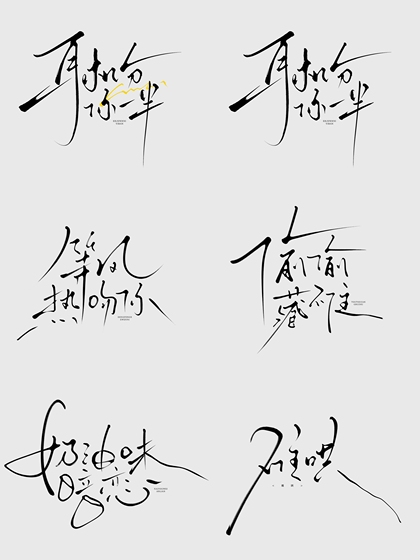 耳机分
你一半
耳机分
你一半
等风
热吻你
偷偷
藏不住
奶油味
暗恋
难哄